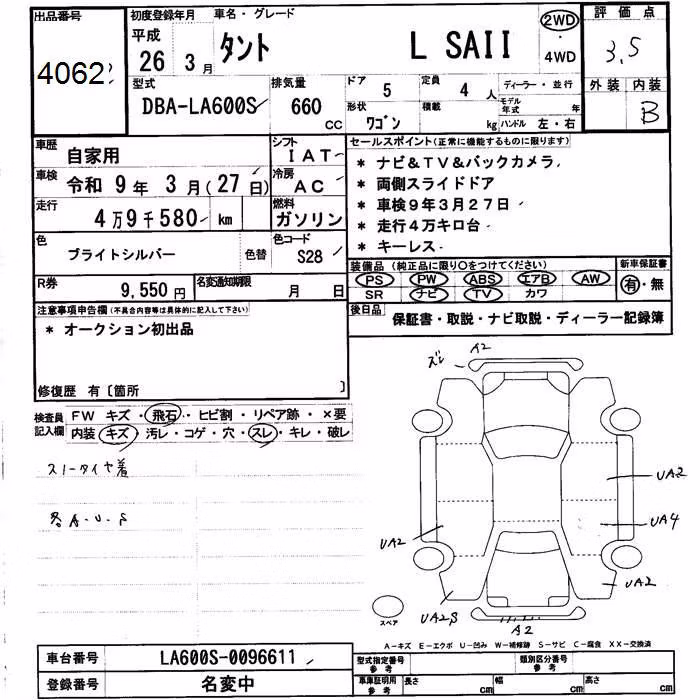 出品番号
4062
初度登録年月
平成
26年 3月
車名・グレード
タント L SAII
2WD
・
4WD
評価点
3.5
外装 内装
B
型式
DBA-LA600S
排気量
660 cc
ドア 5
定員 4 人
形状 ワゴン
積載 kg
ディーラー・並行
モデル年式 年
ハンドル 左・右
車歴 自家用
シフト IAT
車検 令和 9年 3月(27日)
冷房 AC
走行 4万9千580 km
燃料 ガソリン
色 ブライトシルバー 色替
色コード S28
R券 9,550円
名変通知期限 月 日
セールスポイント(正常に機能するものに限ります)
* ナビ&TV&バックカメラ
* 両側スライドドア
* 車検9年3月27日
* 走行4万キロ台
* キーレス
装備品(純正品に限り○をつけてください)
PS PW ABS エアB AW
SR ナビ TV カワ
新車保証書
有・無
後日品 保証書・取説・ナビ取説・ディーラー記録簿
注意事項申告欄(不具合内容等は具体的に記入して下さい)
* オークション初出品
修復歴 有〔箇所 〕
検査員記入欄
FW キズ・飛石・ヒビ割・リペア跡・×要
内装 キズ・汚レ・コゲ・穴・スレ・キレ・破レ
スノータイヤ着
各A.U.S
ズレ
A2
UA2
UA4
UA2
UA2
UA2S
A2
スペア
A-キズ E-エクボ U-凹み W-補修跡 S-サビ C-腐食 XX-交換済
車台番号 LA600S-0096611
登録番号 名変中
型式指定番号 参考
類別区分番号 参考
車庫証明用 参考
長さ cm
幅 cm
高さ cm